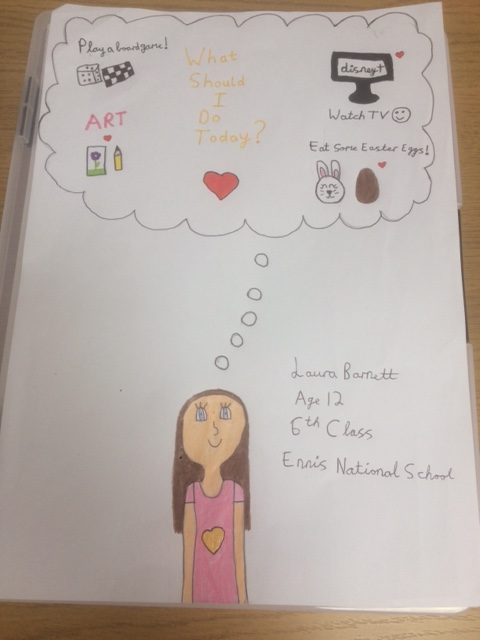 Play a boardgame!
What
Should
I
Do
Today?
disney+
Watch TV
ART
Eat Some Easter Eggs!
Laura Barnett
Age 12
6th Class
Ennis National School